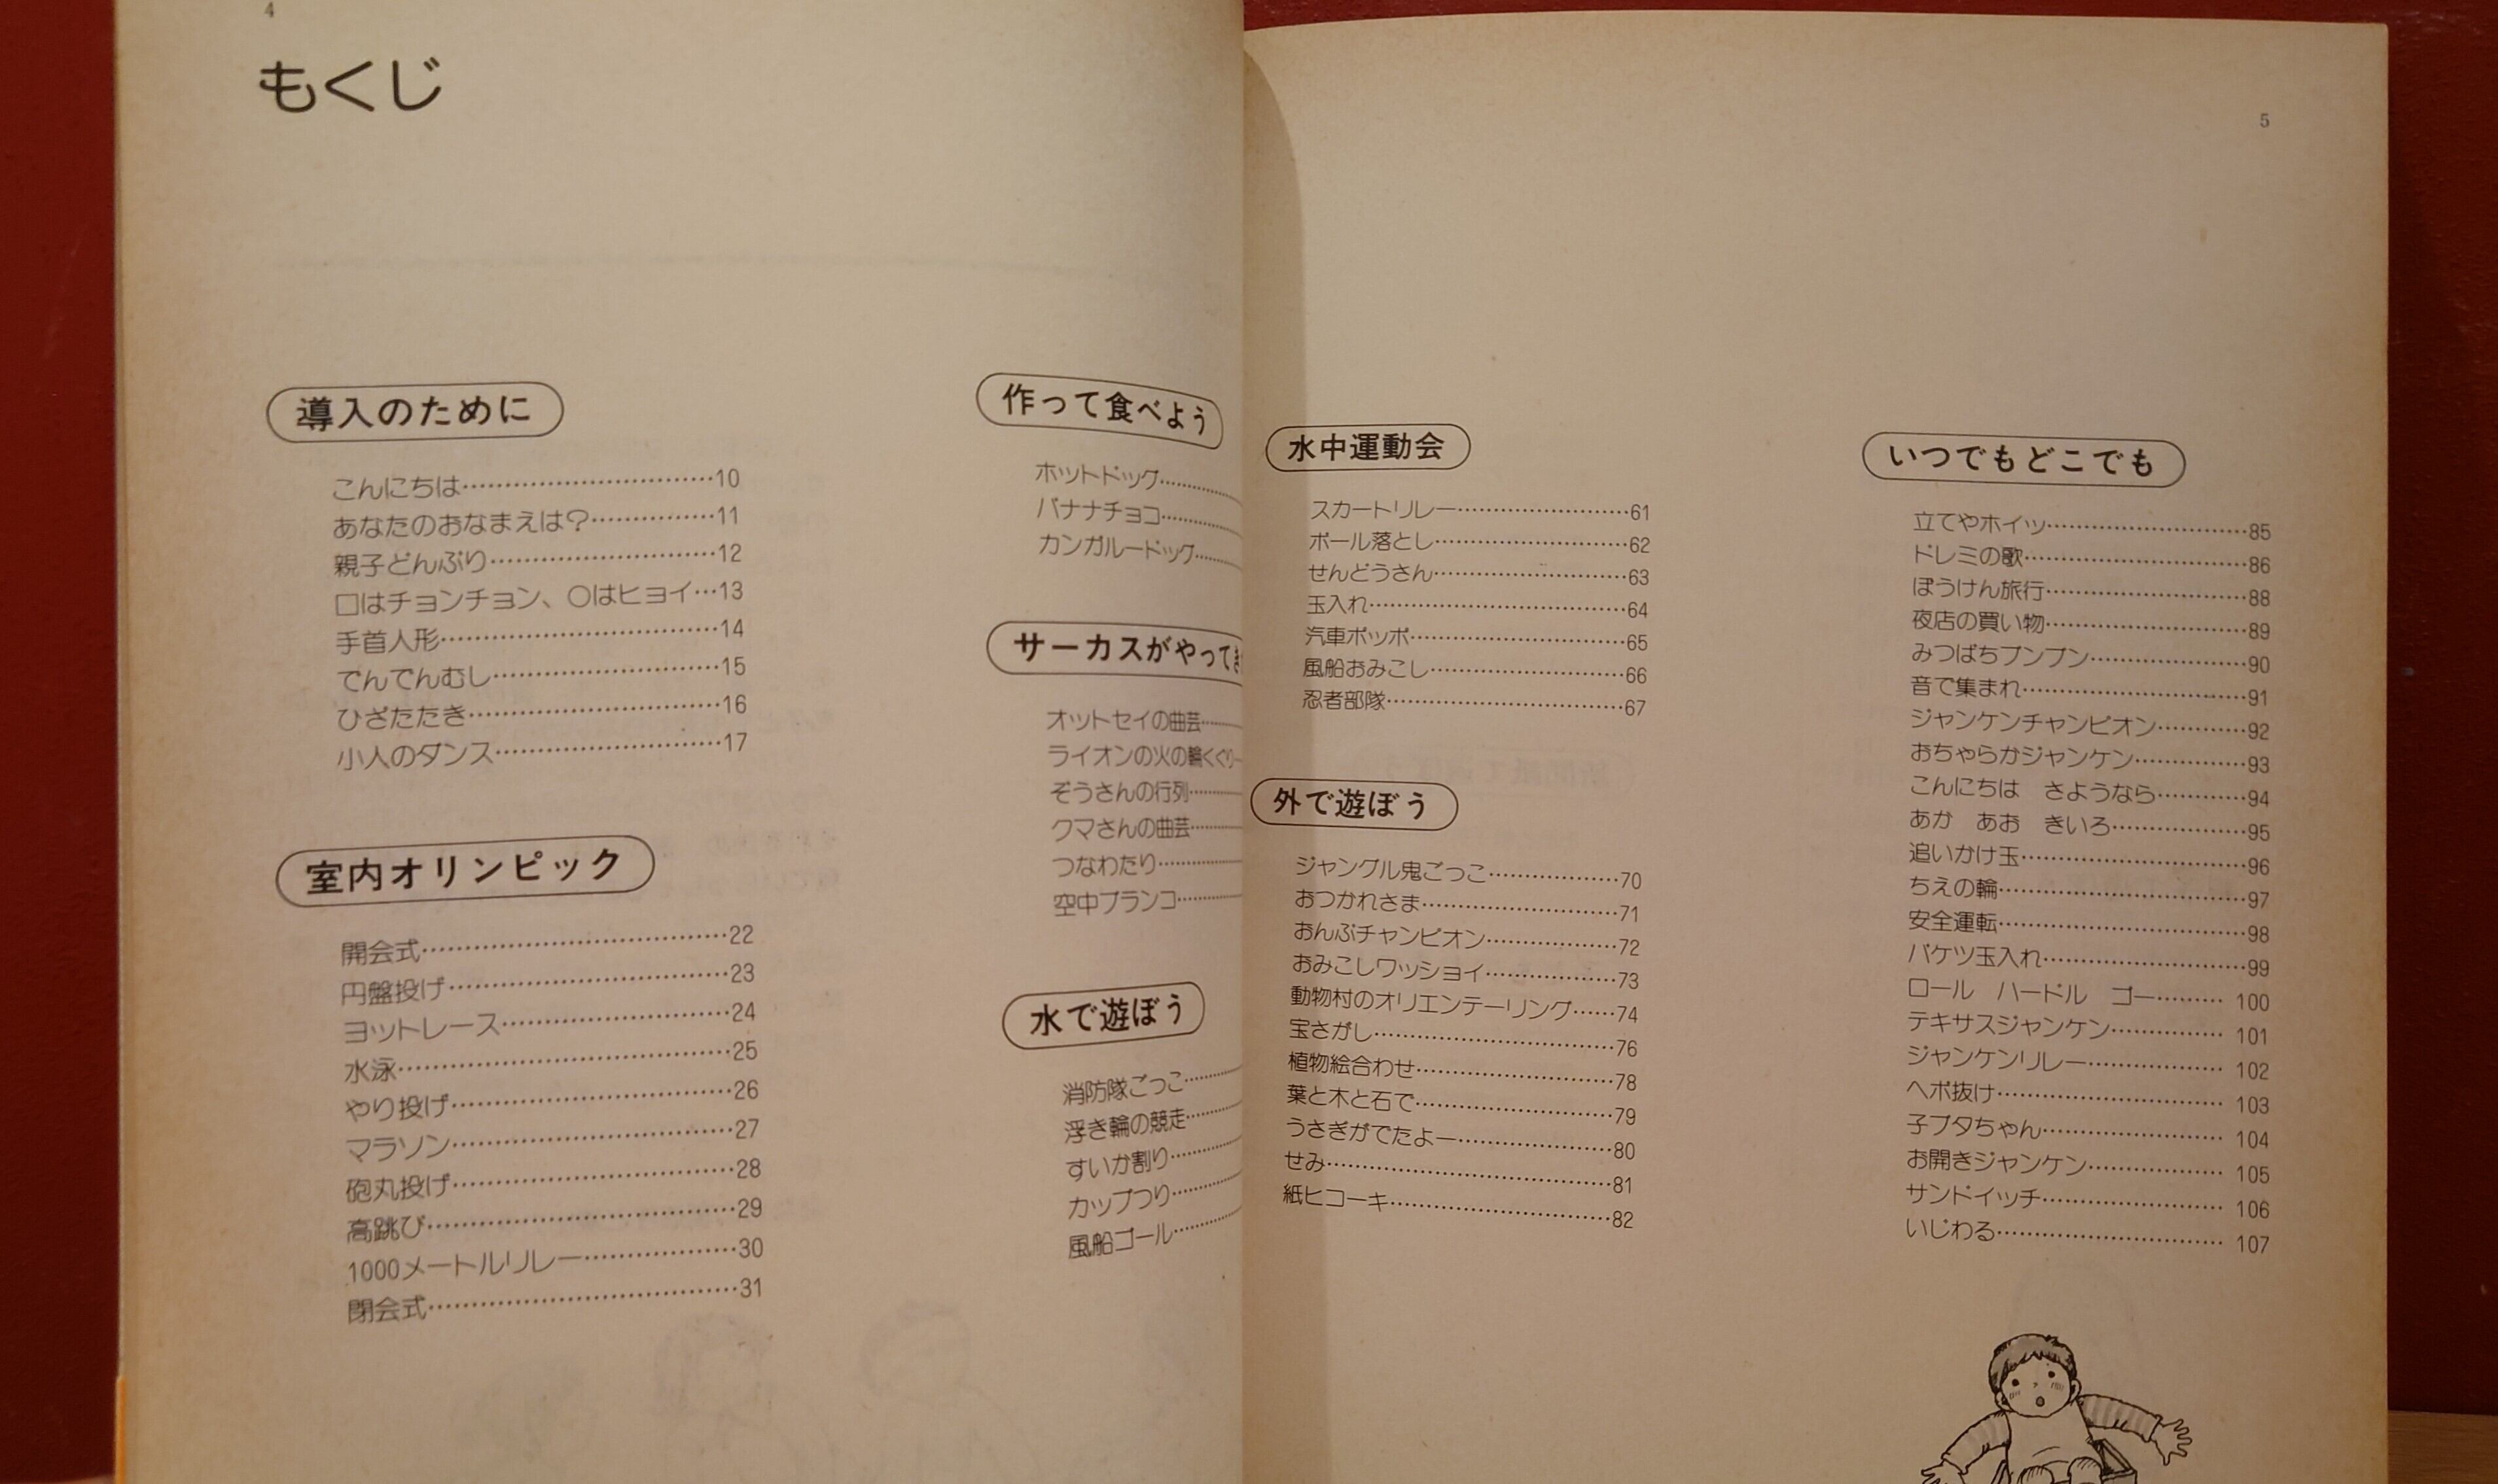 4
もくじ
導入のために
こんにちは……………10
あなたのおなまえは?……………11
親子どんぶり……………12
□はチョンチョン、○はヒョイ…13
手首人形……………14
でんでんむし……………15
ひざたたき……………16
小人のダンス……………17
室内オリンピック
開会式……………22
円盤投げ……………23
ヨットレース……………24
水泳……………25
やり投げ……………26
マラソン……………27
砲丸投げ……………28
高跳び……………29
1000メートルリレー……………30
閉会式……………31
作って食べよう
ホットドッグ……
バナナチョコ……
カンガルードッグ……
サーカスがやってき
オットセイの曲芸……
ライオンの火の輪くぐり…
ぞうさんの行列……
クマさんの曲芸……
つなわたり……
空中ブランコ……
水で遊ぼう
消防隊ごっこ……
浮き輪の競走……
すいか割り……
カップつり……
風船ゴール……
5
水中運動会
スカートリレー……………61
ボール落とし……………62
せんどうさん……………63
玉入れ……………64
汽車ポッポ……………65
風船おみこし……………66
忍者部隊……………67
外で遊ぼう
ジャングル鬼ごっこ……………70
おつかれさま……………71
おんぶチャンピオン……………72
おみこしワッショイ……………73
動物村のオリエンテーリング……74
宝さがし……………76
植物絵合わせ……………78
葉と木と石で……………79
うさぎがでたよー……………80
せみ……………81
紙ヒコーキ……………82
いつでもどこでも
立てやホイッ……………85
ドレミの歌……………86
ぼうけん旅行……………88
夜店の買い物……………89
みつばちブンブン……………90
音で集まれ……………91
ジャンケンチャンピオン……………92
おちゃらかジャンケン……………93
こんにちは　さようなら……………94
あか　あお　きいろ……………95
追いかけ玉……………96
ちえの輪……………97
安全運転……………98
バケツ玉入れ……………99
ロール　ハードル　ゴー……… 100
テキサスジャンケン…………… 101
ジャンケンリレー…………… 102
ヘボ抜け…………… 103
子ブタちゃん…………… 104
お開きジャンケン…………… 105
サンドイッチ…………… 106
いじわる…………… 107